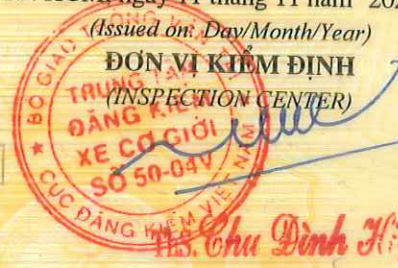 ngày 11 tháng 11 năm 20
(Issued on: Day/Month/Year)
ĐƠN VỊ KIỂM ĐỊNH
(INSPECTION CENTER)
BỘ GIAO THÔNG VẬN
TRUNG TÂM
ĐĂNG KIỂM
XE CƠ GIỚI
SỐ 50-04V
CỤC ĐĂNG KIỂM VIỆT NAM
ThS. Chu Đình H